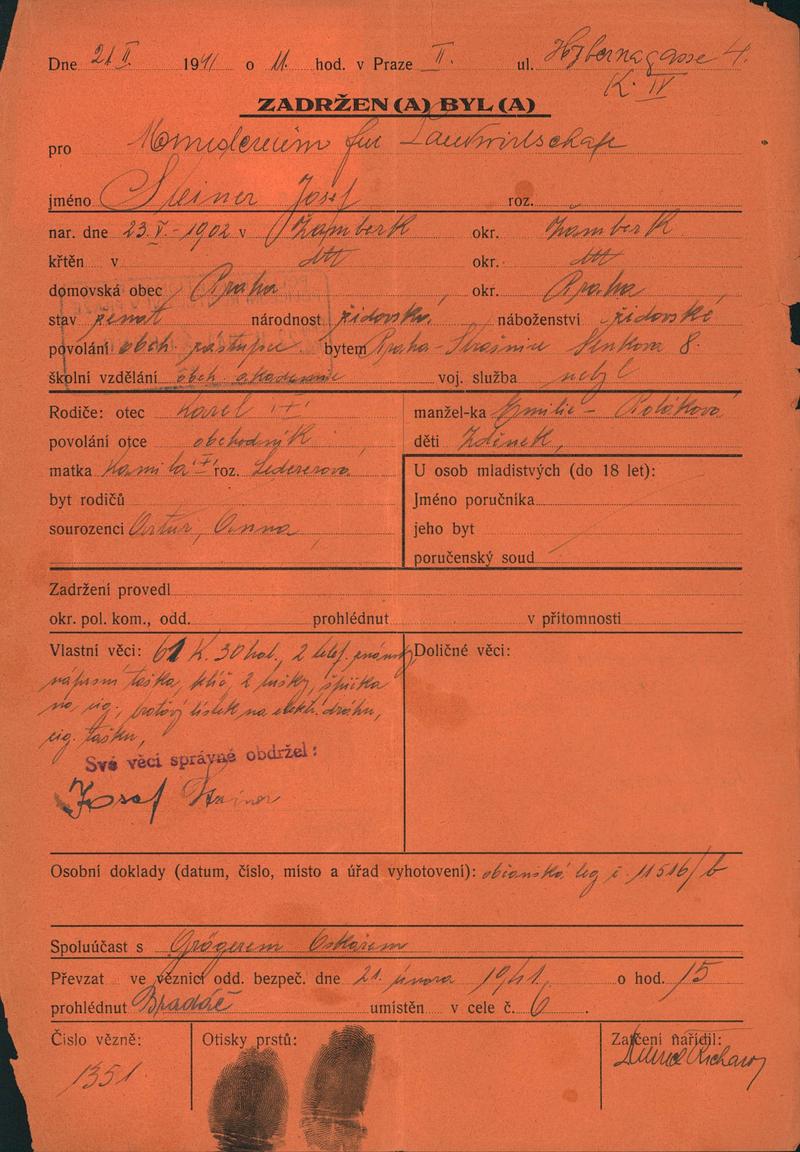 Dne 21. II. 1941 o 11. hod. v Praze II. ul. Hybernagasse 4.
K. IV
ZADRŽEN(A) BYL(A)
pro Ministerium für Landwirtschaft
jméno Steiner Josef roz.
nar. dne 23. V. - 1902 v Žamberk okr. Žamberk
křtěn v dtt okr. dtt
domovská obec Praha okr. Praha
stav ženat národnost židovská náboženství židovské
povolání obch. zástupce bytem Praha - Strašnice 8.
školní vzdělání obch. akademie voj. služba nebyl
Rodiče: otec Karel "+"
povolání otce obchodník
matka Kamila "+" roz. Ledererová
byt rodičů
sourozenci Artur, Anna
manžel-ka Emilie - Poláková
děti Zdenek,
U osob mladistvých (do 18 let):
Jméno poručníka
jeho byt
poručenský soud
Zadržení provedl
okr. pol. kom., odd. prohlédnut v přítomnosti
Vlastní věci: 61 K. 30 hal., 2 telef. známky
náprsní taška, klíč, 2 tužky, špička
na cig., lístek na elektr. dráhu,
cig. tašku,
Své věci správně obdržel:
Josef Steiner
Doličné věci:
Osobní doklady (datum, číslo, místo a úřad vyhotovení): občanská leg č. 11516/b
Spoluúčast s Grögerem Oskarem
Převzat ve věznici odd. bezpeč. dne 21. února 1941 o hod. 15
prohlédnut Bradáč umístěn v cele č. 6.
Číslo vězně:
1351
Otisky prstů:
Zatčení nařídil: